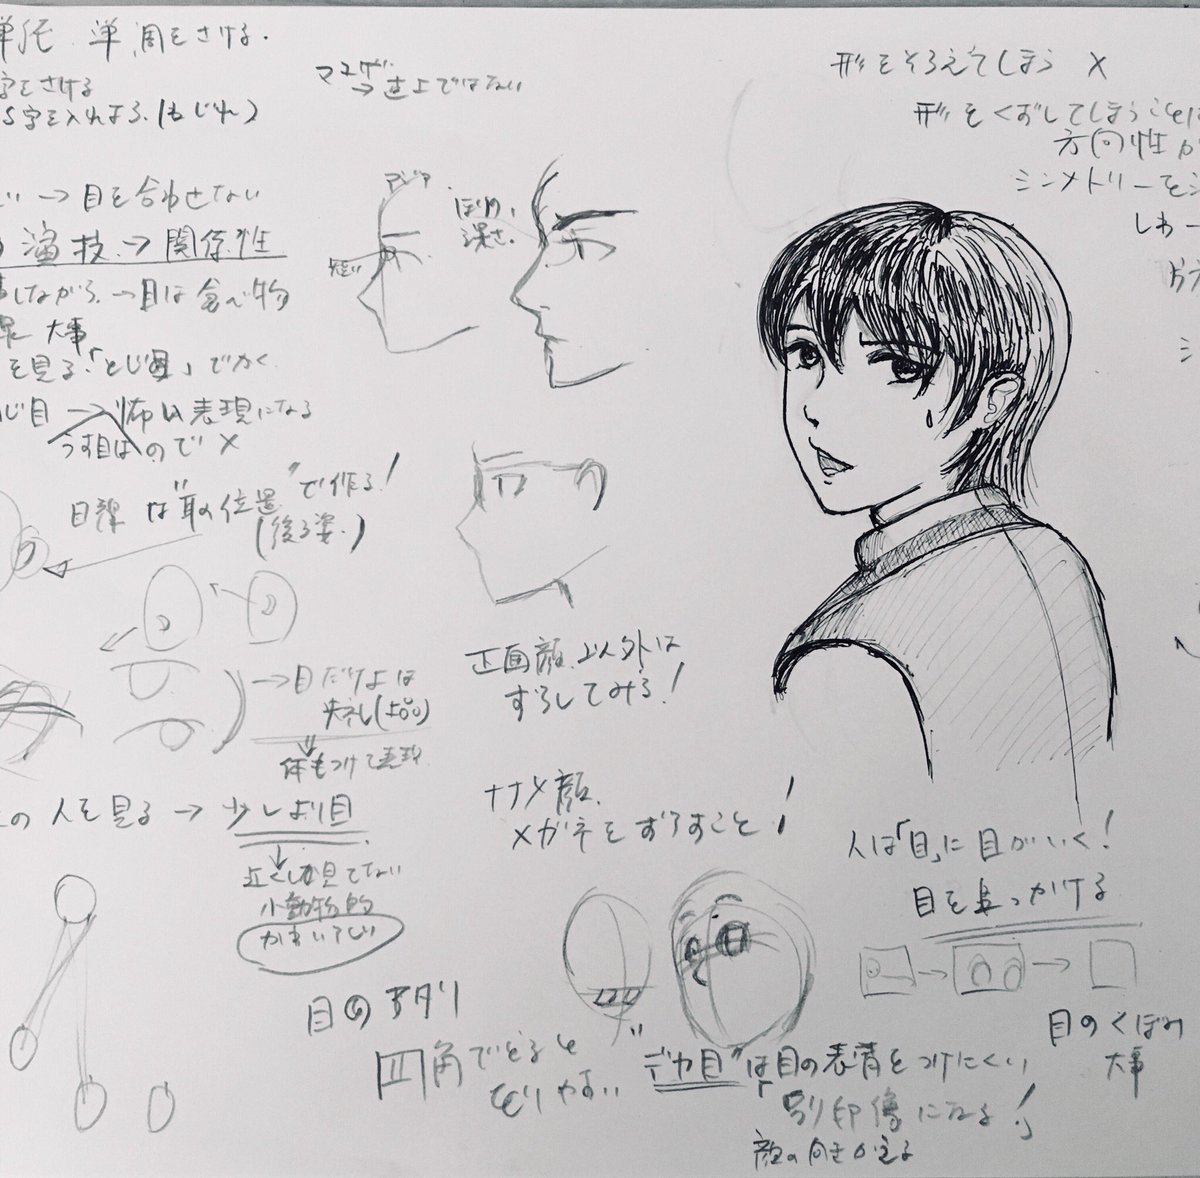 単調をさける.
字をさける
S字を入れよう.(もじれ)
→目を合わせない
演技→関係性
しながら→目は食べ物
大事
を見る「とじ目」でかく
じ目→怖い表現になる
うす目はので×
目線は"耳の位置"で作る!
(後ろ姿.)
→目だけよは
失礼(上品)
体もつけて表現
の人を見る→少しより目
近くしか見てない
小動物的
かわいてい
マユゲ
→近上ではない
アジア
ほり、
深さ.
短い
正面顔以外は
ずらしてみる!
ナナメ顔.
メガネをずらすこと!
目のアタリ
四角でとると
とりやすい
"デカ目"は目の表情をつけにくい
「別印象になる!」
顔の向き
形をそろえてしまう ×
形をくずしてしまうことは
方向性が
シンメトリーを
しわー
人は「目」に目がいく!
目を見つかける
目のくぼみ
大事